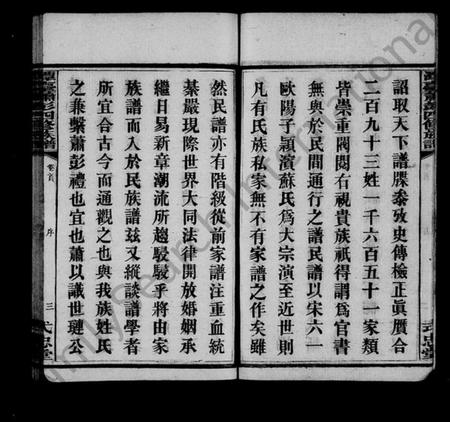 詔取天下譜牒叅攷史傳檢正眞贋合
二百九十三姓一千六百五十一家類
皆崇重閥閱右視貴族祇得謂爲官書
無與於民間通行之譜民譜以宋六一
歐陽子顥演蘇氏爲大宗演至近世則
凡有氏族私家無不有家譜之作矣雖
然民譜亦有階級從前家譜注重血統
綦嚴現際世界大同法律開放婚姻承
繼日易新章潮流所趨駸駸乎將由家
族譜而入於民族譜茲又縱談譜學者
所宜合古今而通觀之也與我族姓氏
之兼繫蕭彭禮也宜也蕭以識世璉公
卷首
序
三
式忠堂
四修族譜
式忠堂
FamilySearch International